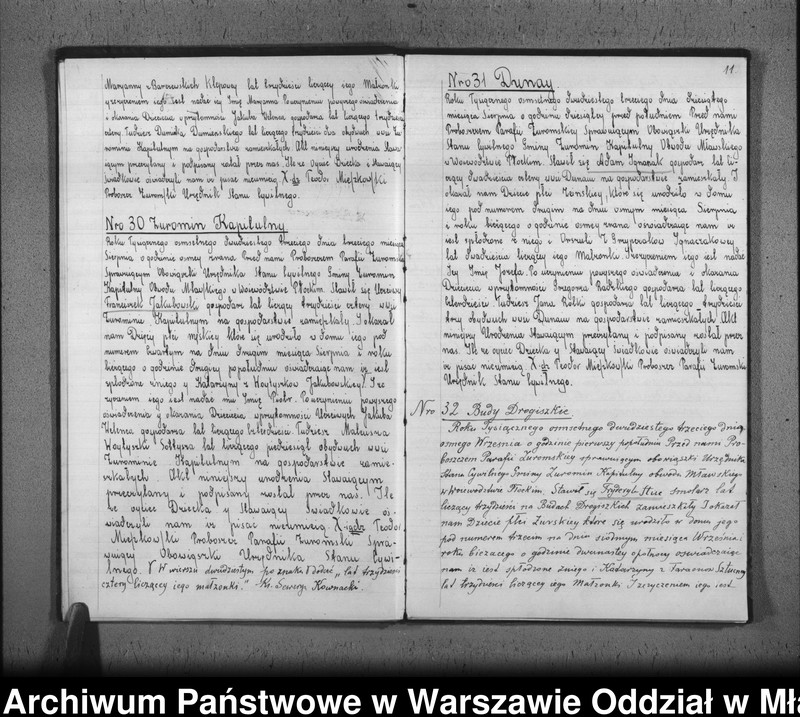 Maryanny z Barczewskich Klepowy lat trzydzieści liczący jego Małzonki
z życzeniem jego jest nadać jej Imię Maryanna Po uczynieniu powyższego oświadczenia
i okazania Dziecięcia w przytomności Jakuba Kelenca gospodarza lat liczącego trzydzieści
cztery Tudziesz Damiana Dumieńskiego lat liczącego trzydzieści dwa obydwóch w wsi Żu
rominie Kapitulnym na gospodarstwie zamieszkałych Akt niniejszy urodzenia Stawa
jącym przeczytany i podpisany został przez nas. Ile ze Ojciec Dziecka i Stawający
świadkowie oświadczyli nam iż pisać nieumieią X-dz Teodor Mięszkowski
Proboszcz Żuromski Urzędnik Stanu Cywilnego.
Nro 30 Żuromin Kapitulny
Roku Tysiącznego osmsetnego dwudziestego trzeciego dnia trzeciego miesiąca
Sierpnia o godzinie osmej zrana Przed nami Proboszczem Parafii Żuromskiej
Sprawującym Obowiązki Urzędnika Stanu Cywilnego Gminy Żuromin
Kapitulny Obwodu Mławskiego w Województwie Płockim Stawił się Uczciwy
Franciszek Jakubowski gospodarz lat liczący trzydzieści cztery w wsi
Żurominie Kapitulnym na gospodarstwie zamieszkały I okazał
nam Dziecię płci męzkiej które się urodziło w domu jego pod
numerem czwartym na dniu drugim miesiąca Sierpnia i roku
bieżącego o godzinie drugiej popołudniu oświadczając nam iż jest
spłodzone z niego y Katarzyny z Woytysków Jakubowskiej I ze
życzeniem jego jest nadać mu Imię Piotr. Po uczynieniu powyższego
oświadczenia y okazania Dziecięcia w przytomności Uczciwych Jakuba
Kelenca gospodarza lat liczącego Tudziesz Mateusza
Woytyski Sołtysa lat liczącego piędziesiąt obydwóch w wsi
Żurominie Kapitulnym na gospodarstwie zamie-
szkałych. Akt niniejszy urodzenia Stawającym
przeczytany i podpisany został przez nas. Ile
ze ojciec Dziecka y Stawający Świadkowie oś-
wiadczyli nam iz pisać nieumieią X-iądz Teodor
Mięszkowski Proboszcz Parafii Żuromski Spra-
wujący Obowiązki Urzędnika Stanu Cywi-
lnego. V W wierszu dwudziestym po znaku V dodać „lat trzydzieści
cztery liczącej jego małżonki." Ks. Seweryn Kownacki
11.
Nro 31 Dunay
Roku Tysiącznego osmsetnego dwudziestego trzeciego dnia dziesiątego
miesiąca Sierpnia o godzinie dziesiątej przed południem Przed nami
Proboszczem Parafii Żuromskiej Sprawującym Obowiązki Urzędnika
Stanu Cywilnego Gminy Żuromin Kapitulny Obwodu Mławskiego
w Województwie Płockim. Stawił się Adam Ignaczak gospodarz lat li-
czący dwadzieścia cztery w wsi Dunaiu na gospodarstwie zamieszkały I
okazał nam Dziecię płci Żenskiej, które się urodziło w domu
jego pod numerem drugim na dniu osmym miesiąca Sierpnia
i roku bieżącego o godzinie osmej zrana oświadczając nam iz
jest spłodzone z niego i Orszuli Ignaczakowej
lat dwadzieścia liczącej jego Małzonki. I z życzeniem jego jest nadać
Jej Imię Józefa. Po uczynieniu powyższego oświadczenia i okazania
Dziecięcia w przytomności Grzegorza Radzkiego gospodarza lat liczącego
czterdzieści Tudziesz Jana Rutki gospodarza lat liczącego trzydzieści
trzy obydwóch w wsi Dunaiu na gospodarstwie zamieszkałych Akt
niniejszy Urodzenia Stawającym przeczytany i podpisany został przez
nas. Ile ze ojciec Dziecka y Stawający Świadkowie oświadczyli nam
iz pisać nieumieią X-dz Teodor Mięszkowski Proboszcz Parafii Żuromski
Urzędnik Stanu Cywilnego.
Nro 32 Budy Drogiszkie
Roku Tysiącznego osmsetnego dwudziestego trzeciego dnia
osmego Września o godzinie pierwszej popołudniu Przed nami Pro-
boszczem Parafii Żuromskiej sprawującym obowiązki Urzędnika
Stanu Cywilnego Gminy Żuromin Kapitulny obwodu Mławskiego
w Województwie Płockim. Stawił się Fryderyk Stuc smolarz lat
liczący trzydzieści na Budach Drogiszkich zamieszkały I okazał
nam Dziecię płci Żeńskiej które się urodziło w domu jego
pod numerem trzecim na dniu siódmym miesiąca Września i
roku bieżącego o godzinie dwunastej oświadczając
nam iż jest spłodzone z niego i Katarzyny z Sztucny
lat trzydzieści liczącej jego Małzonki I z życzeniem jego jest
Archiwum Państwowe w Warszawie Oddział w Mła